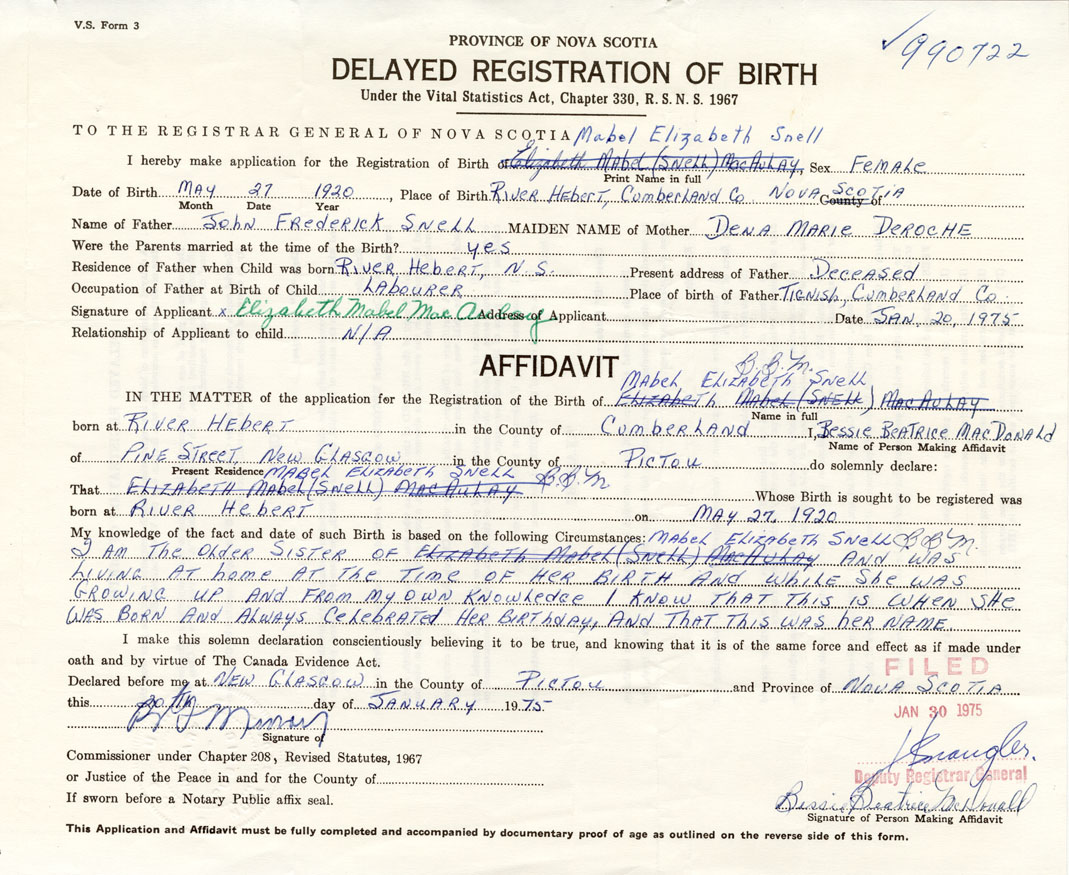 V.S. Form 3
✓990722
PROVINCE OF NOVA SCOTIA
DELAYED REGISTRATION OF BIRTH
Under the Vital Statistics Act, Chapter 330, R. S. N. S. 1967
TO THE REGISTRAR GENERAL OF NOVA SCOTIA Mabel Elizabeth Snell
I hereby make application for the Registration of Birth of Elizabeth Mabel (Snell) MacAulay, Sex Female
Print Name in full
Date of Birth May 27 1920, Place of Birth River Hebert, Cumberland Co. Nova Scotia
Month Date Year County of
Name of Father John Frederick Snell MAIDEN NAME of Mother Dena Marie Deroche
Were the Parents married at the time of the Birth? yes
Residence of Father when Child was born River Hebert, N.S. Present address of Father Deceased
Occupation of Father at Birth of Child Labourer Place of birth of Father Tignish, Cumberland Co.
Signature of Applicant x Elizabeth Mabel Mac Aulay Address of Applicant Date Jan. 20, 1975
Relationship of Applicant to child N/A
AFFIDAVIT
B.B.M.
Mabel Elizabeth Snell
IN THE MATTER of the application for the Registration of the Birth of Elizabeth Mabel (Snell) MacAulay
Name in full
born at River Hebert in the County of Cumberland I, Bessie Beatrice MacDonald
Name of Person Making Affidavit
of Pine Street, New Glasgow in the County of Pictou do solemnly declare:
Present Residence Mabel Elizabeth Snell B.B.M
That Elizabeth Mabel (Snell) MacAulay Whose Birth is sought to be registered was
born at River Hebert on May 27, 1920
My knowledge of the fact and date of such Birth is based on the following Circumstances: Mabel Elizabeth Snell B.B.M.
I am the older sister of Elizabeth Mabel (Snell) MacAulay and was
living at home at the time of her birth and while she was
growing up and from my own knowledge I know that this is when she
was born and always celebrated her birthday, and that this was her name
I make this solemn declaration conscientiously believing it to be true, and knowing that it is of the same force and effect as if made under
oath and by virtue of The Canada Evidence Act.
FILED
Declared before me at New Glasgow in the County of Pictou and Province of Nova Scotia
this 20th day of January 1975
JAN 30 1975
Signature of
Commissioner under Chapter 208, Revised Statutes, 1967
or Justice of the Peace in and for the County of
Deputy Registrar General
If sworn before a Notary Public affix seal.
Bessie Beatrice McDonald
Signature of Person Making Affidavit
This Application and Affidavit must be fully completed and accompanied by documentary proof of age as outlined on the reverse side of this form.